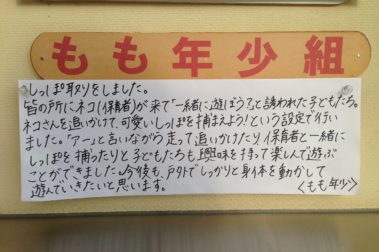 もも年少組
しっぽ取りをしました。
皆の所にネコ(保育者)が来て「一緒に遊ぼう?」と誘われた子どもたち。
ネコさんを追いかけて、可愛いしっぽを捕まえよう!という設定で行い
ました。「アー」と言いながら走って追いかけたり、保育者と一緒に
しっぽを捕ったりと子どもたちも興味を持って楽しんで遊ぶ
ことができました。今後も、戸外でしっかりと身体を動かして
遊んでいきたいと思います。 〈もも年少〉